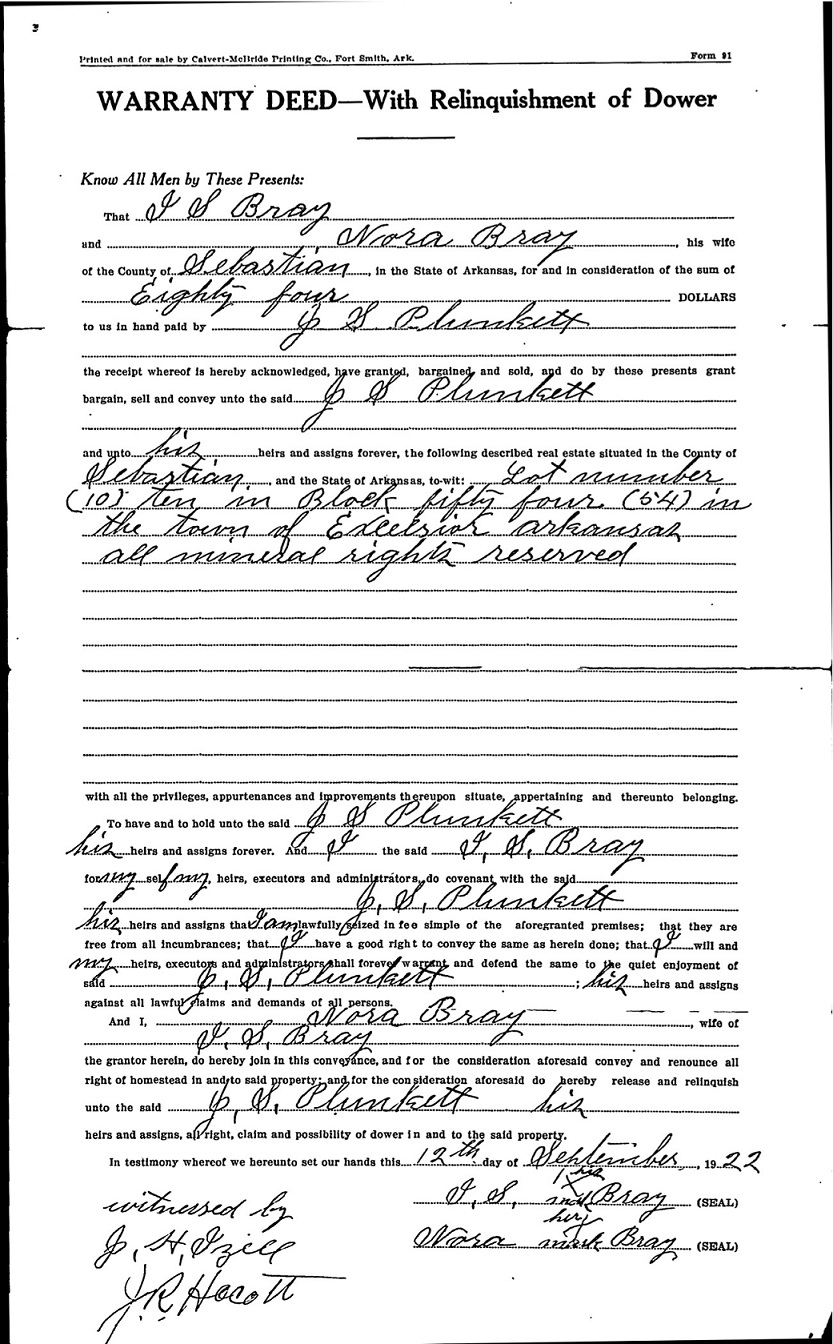 Printed and for sale by Calvert-McBride Printing Co., Fort Smith, Ark. Form 91
WARRANTY DEED—With Relinquishment of Dower
Know All Men by These Presents:
That I S Bray
and Nora Bray, his wife
of the County of Sebastian, in the State of Arkansas, for and in consideration of the sum of
Eighty four DOLLARS
to us in hand paid by J S Plunkett
the receipt whereof is hereby acknowledged, have granted, bargained and sold, and do by these presents grant
bargain, sell and convey unto the said J S Plunkett
and unto his heirs and assigns forever, the following described real estate situated in the County of
Sebastian, and the State of Arkansas, to-wit: Lot number
(10) ten in Block fifty four (54) in
the town of Excelsior arkansas
all mineral rights reserved
with all the privileges, appurtenances and improvements thereupon situate, appertaining and thereunto belonging.
To have and to hold unto the said J S Plunkett
his heirs and assigns forever. And I the said I, S, Bray
for my self my, heirs, executors and administrators, do covenant with the said
J, S, Plunkett
his heirs and assigns that I am lawfully seized in fee simple of the aforegranted premises; that they are
free from all incumbrances; that I have a good right to convey the same as herein done; that I will and
my heirs, executors and administrators shall forever warrant and defend the same to the quiet enjoyment of
said J, S, Plunkett; his heirs and assigns
against all lawful claims and demands of all persons.
And I, Nora Bray, wife of
I, S, Bray
the grantor herein, do hereby join in this conveyance, and for the consideration aforesaid convey and renounce all
right of homestead in and to said property; and for the consideration aforesaid do hereby release and relinquish
unto the said J, S, Plunkett his
heirs and assigns, all right, claim and possibility of dower in and to the said property.
In testimony whereof we hereunto set our hands this 12th day of September, 1922
his
witnessed by I, S, X mark Bray (SEAL)
her
J, H, Izell Nora mark Bray (SEAL)
J. R. Hocott